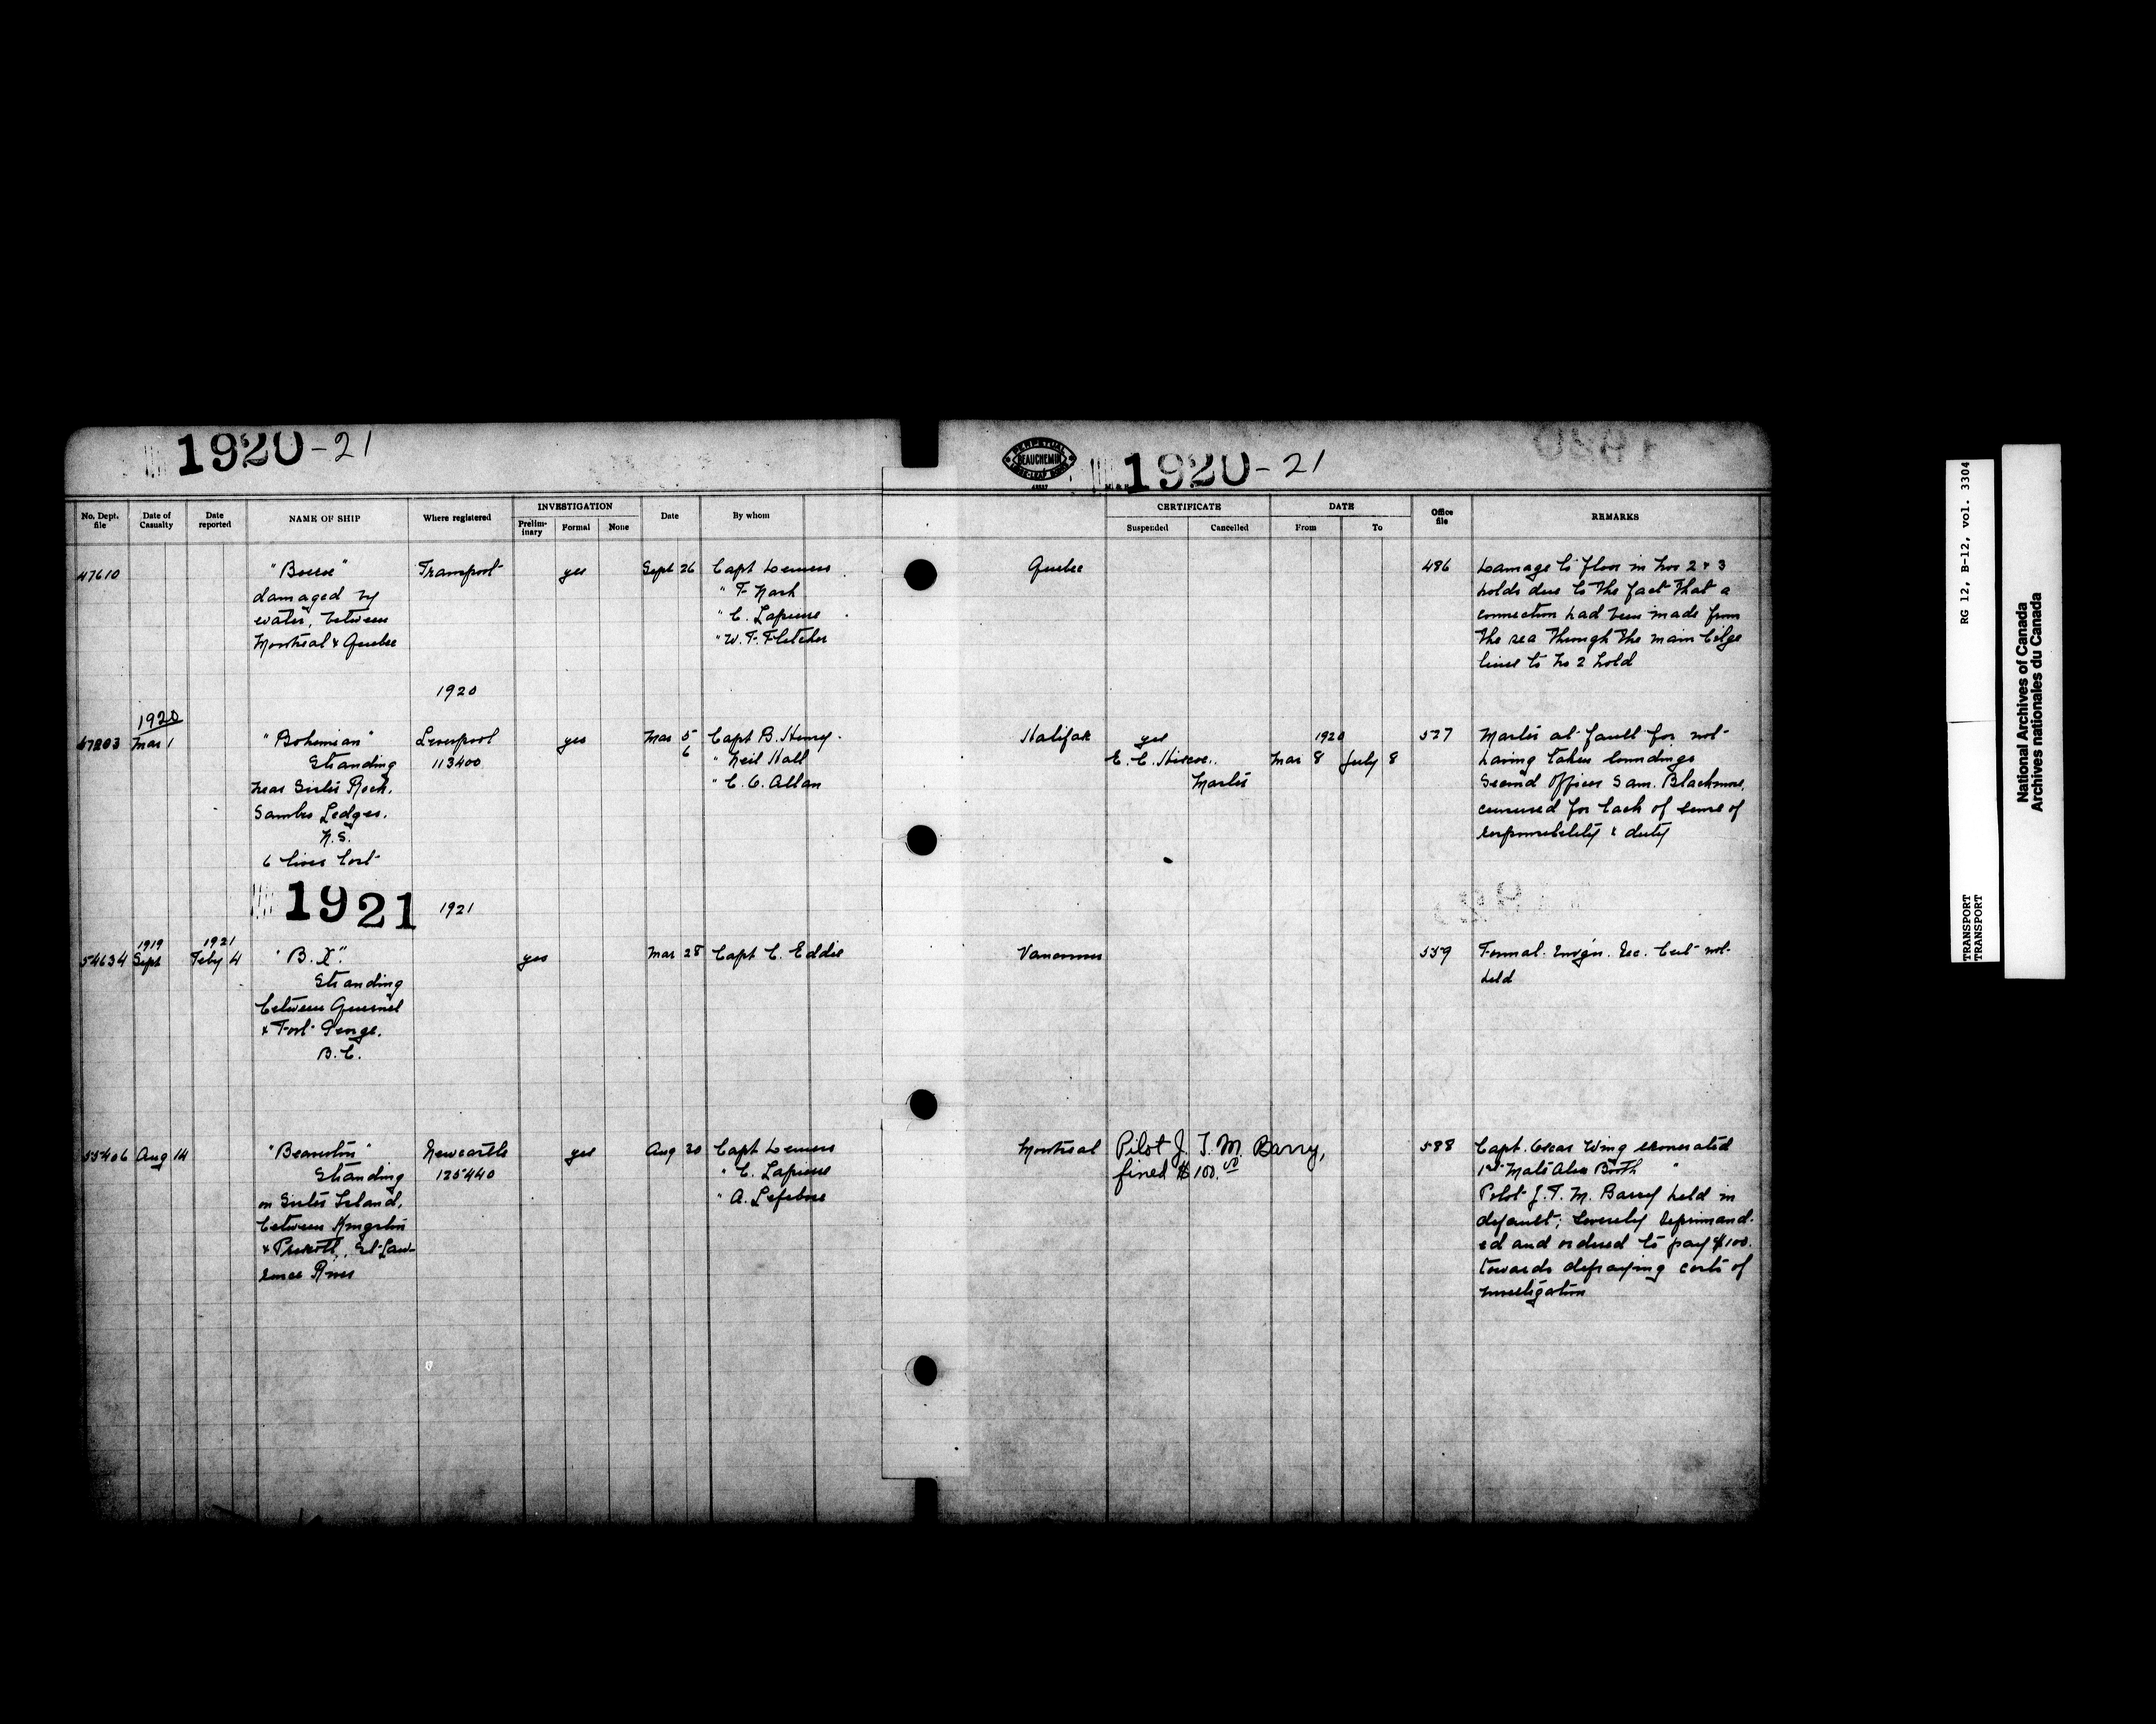 1920-21
No. Dept. file
Date of Casualty
Date reported
NAME OF SHIP
Where registered
INVESTIGATION
Preliminary
Formal
None
Date
By whom
47610
damaged by
water, between
Montreal & Quebec
yes
Sept 26
Capt Demers
" F Nash
" C. Lapierre
" W. F. Fletcher
1920
1920
47203 Mar 1
"Bohemian"
Stranding
near Sister Rock,
Sambro Ledges.
N.S.
6 lives lost
Liverpool
113400
yes
Mar 5
6
Capt B. Henry.
" Neil Hall
" C. O. Allan
1921
1921
1919
1921
54634 Sept
Feby 4
"B.X."
Stranding
between Quesnel
& Fort George,
B.C.
yes
Mar 28
Capt C. Eddie
55406 Aug 14
"Beaverton"
Stranding
on Sister Island,
between Kingston
& Prescott, St Law-
rence River
Newcastle
125440
yes
Aug 20
Capt Demers
" C. Lapierre
" A. Lefebvre
PERPETUAL
BEAUCHEMIN
LOOSE-LEAF
1920-21
CERTIFICATE
Suspended
Cancelled
DATE
From
To
Office file
REMARKS
Quebec
486
Damage to floor in Nos 2 & 3
holds due to the fact that a
connection had been made from
the sea through the main bilge
lines to No 2 hold
Halifax
yes
E. C. Hiscoe.
Master
1920
Mar 8
July 8
527
Master at fault for not
having taken soundings
Second Officer Sam. Blackmore,
censured for lack of sense of
responsibility & duty
Vancouver
559
Formal Invgn. Sec. Cert not
held
Montreal
Pilot J. T. M. Barry,
fined $100.00
588
Capt. Oscar Wing exonerated
1st Mate Alex Booth "
Pilot J. T. M. Barry held in
default; severely reprimand-
ed and ordered to pay $100.
towards defraying costs of
investigation
RG 12, B-12, vol. 3304
TRANSPORT
TRANSPORT
National Archives of Canada
Archives nationales du Canada